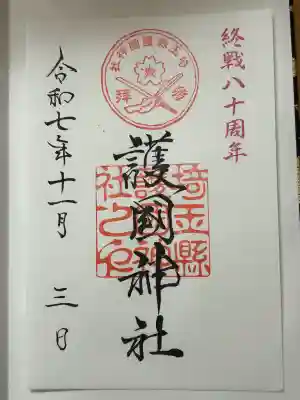 終戰八十周年
参拝
護國神社
埼玉縣護國神社之印
令和七年十一月三日